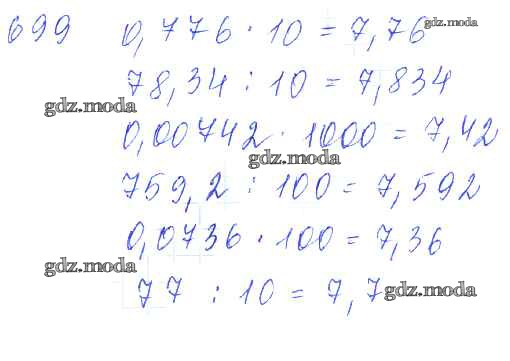 699 0,776 · 10 = 7,76
gdz.moda
78,34 : 10 = 7,834
gdz.moda
0,00742 · 1000 = 7,42
gdz.moda
759,2 : 100 = 7,592
0,0736 · 100 = 7,36
gdz.moda
77 : 10 = 7,7
gdz.moda